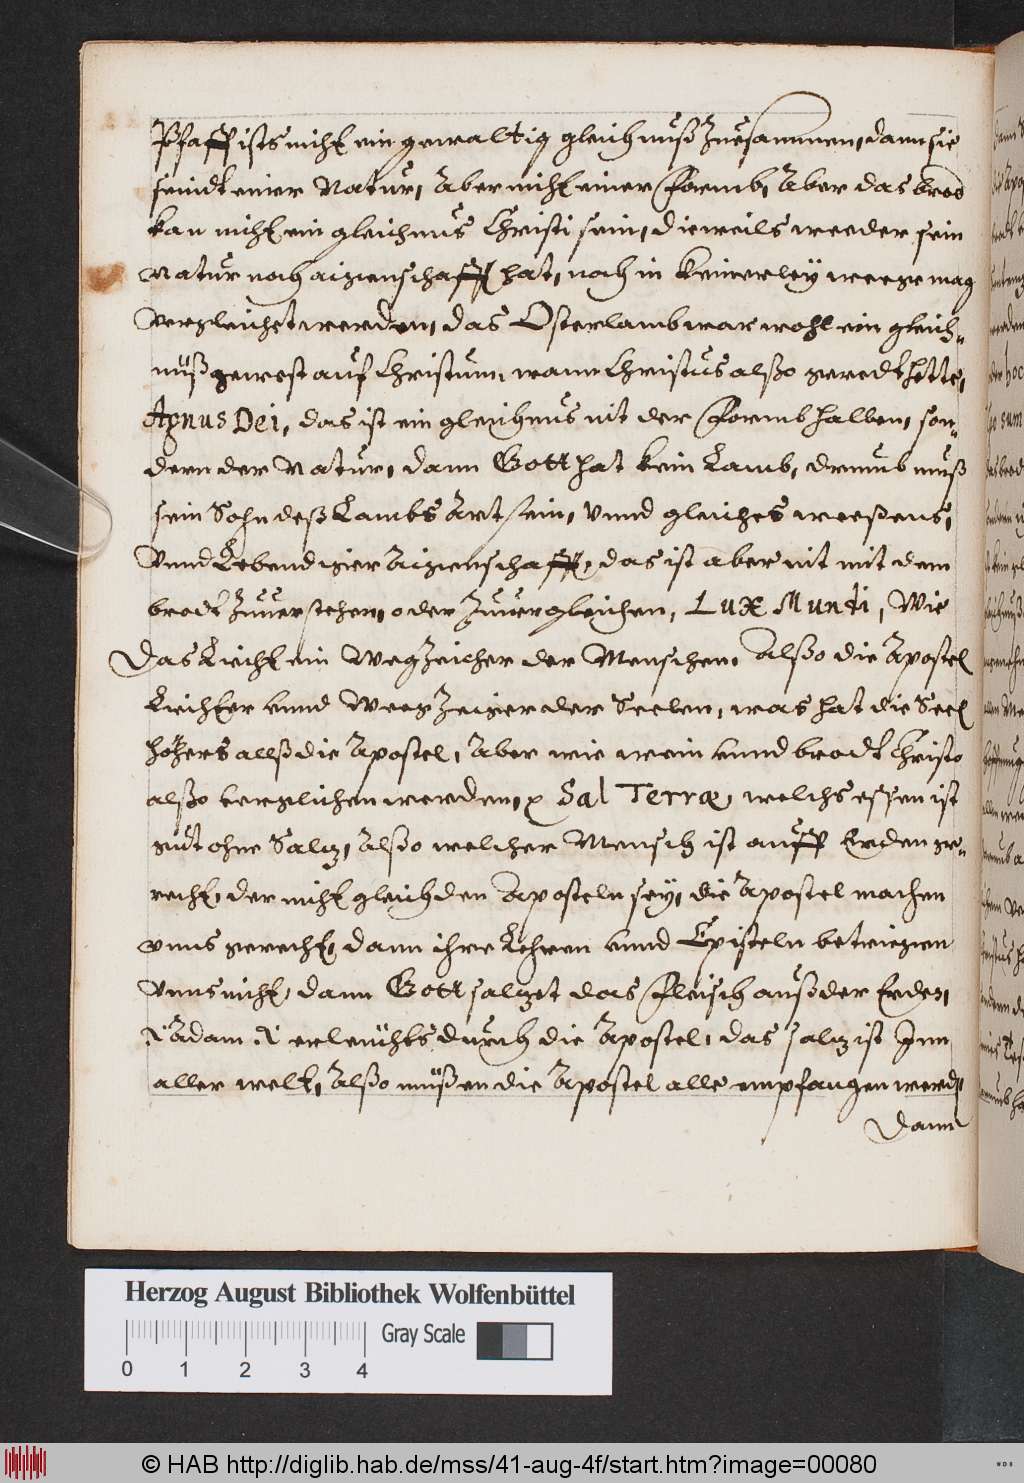 Pfaff ists nicht ein gewaltig gleichnuß Zuesammen, dann sie
seindt einer Natur, Aber nicht einer Formb, Aber das brod
kan nicht ein gleichnus Christi sein, dieweils weeder sein
Natur noch aigenschafft hat, noch in keinerley weege mag
vergleichet werden, das Osterlamb war wohl ein gleich-
nuß gewest auf Christum, wann Christus alßo geredt hette,
Agnus Dei, das ist ein gleichnus nit der Formb halben, son-
dern der Natur, dann Gott hat kein Lamb, drumb muß
sein Sohn deß Lambs Art sein, Vnnd gleiches weeßens,
Vnnd Lebendiger Aigenschafft, das ist aber nit mit dem
brodt Zuuerstehen, oder Zuuergleichen, Lux Mundi, Wie
Das Liecht ein Wegzeicher der Menschen, Alßo die Apostel
Liechter vnnd Weegzeiger der Seelen, was hat die Seel
höhers allß die Apostel, Aber wie wein vnnd brodt Christo
alßo verglichen werden, Sal Terræ, welchs eßen ist
gudt ohne Saltz, Alßo welcher Mensch ist auff Erden ge-
recht, der nicht gleich den Aposteln sey, die Apostel machen
vnns gerecht, dann ihre Lehren vnnd Episteln betriegen
Vnns nicht, dann Gott saltzet das Fleisch auß der Erden,
Adam erleuchts durch die Apostel, das saltz ist Inn
aller welt, Alßo müßen die Apostel alle empfangen werd
Dann
Herzog August Bibliothek Wolfenbüttel
Gray Scale
0 1 2 3 4
© HAB http://diglib.hab.de/mss/41-aug-4f/start.htm?image=00080